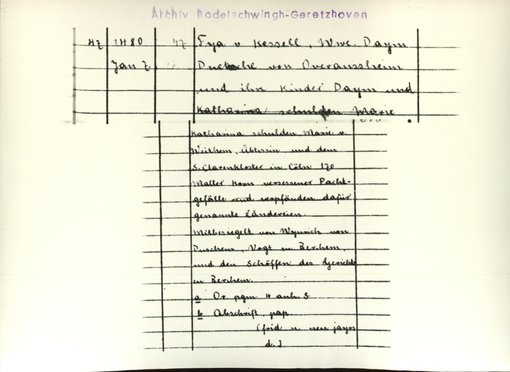 Archiv Bodelschwingh-Geretzhoven
42 1480 47 Fya v Kessell, Wwe. Daym
Jan 7 von Overaussheim
und ihr Kinder Daym und
Katharina schulden Marie
Katharina schulden Marie v
Abtissin, und dem
S. Clarenkloster in Cöln 170
Malter Korn versessener Pacht-
gefälle und verpfänden dafür
genannte Ländereien.
Mitbesiegelt von Wynrich von
Vogt zu Berchem,
und den Schöffen des Gerichts
zu Berchem.
a Or. pgm 4 anh. S.
b Abschrift pap.
(frid n neu jayrs
d.)